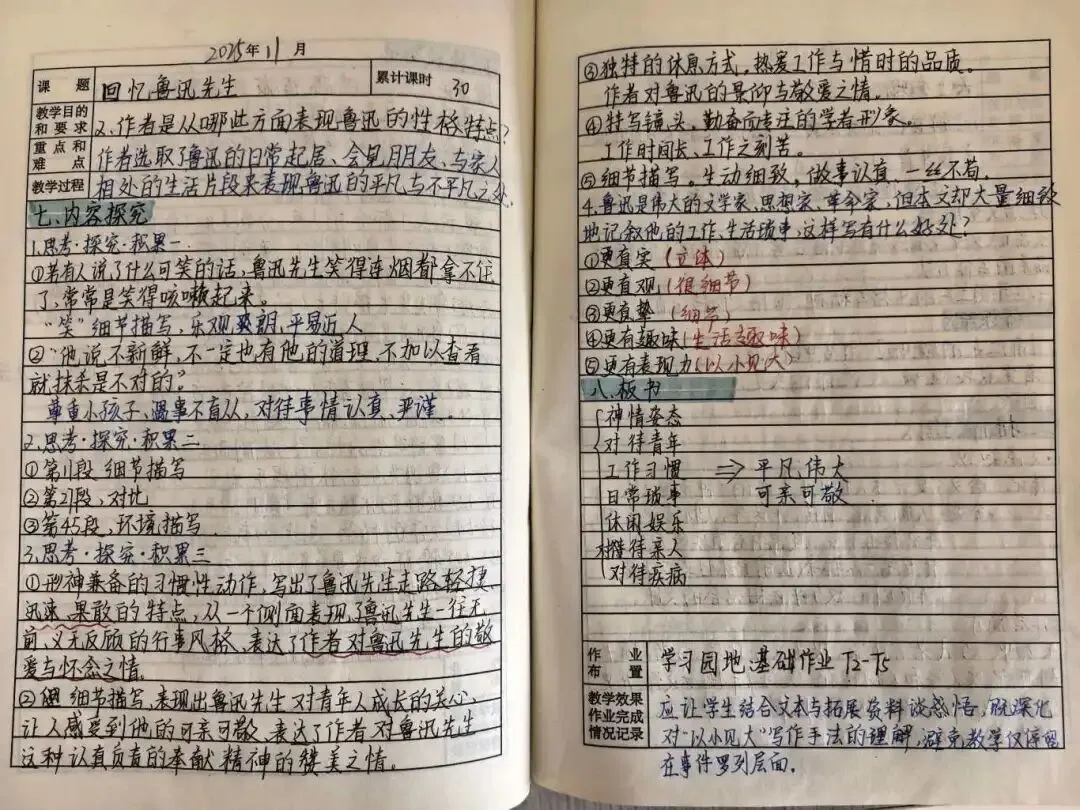 2025年11月
课题 回忆鲁迅先生 累计课时 30
教学目的和要求
重点和难点
教学过程
2、作者是从哪些方面表现鲁迅的性格特点?
作者选取了鲁迅的日常起居、会见朋友、与家人
相处的生活片段来表现鲁迅的平凡与不平凡之处.
七、内容探究
1.思考·探究·积累一
①若有人说了什么可笑的话,鲁迅先生笑得连烟都拿不住
了,常常是笑得咳嗽起来。
"笑"细节描写,乐观爽朗,平易近人
②"他说不新鲜,不一定也有他的道理,不加以查看
就抹杀是不对的?
尊重小孩子,遇事不盲从,对待事情认真、严谨。
2.思考·探究·积累二
①第11段 细节描写
②第21段,对比
③第45段,环境描写
3.思考·探究·积累三
①形神兼备的习惯性动作,写出了鲁迅先生走路轻捷、
迅速、果敢的特点,从一个侧面表现了鲁迅先生一往无
前、义无反顾的行事风格,表达了作者对鲁迅先生的敬
爱与怀念之情。
② 细节描写,表现出鲁迅先生对青年人成长的关心,
让人感受到他的可亲可敬,表达了作者对鲁迅先生
这种认真负责的奉献精神的赞美之情。
③独特的休息方式,热爱工作与惜时的品质。
作者对鲁迅的景仰与敬爱之情。
④特写镜头,勤奋而专注的学者形象。
工作时间长、工作之刻苦。
⑤细节描写。生动细致,做事认真,一丝不苟.
4.鲁迅是伟大的文学家、思想家、革命家,但本文却大量细致
地记叙他的工作、生活琐事,这样写有什么好处?
①更真实(立体)
②更直观(很细节)
③更真挚(细节)
④更有趣味(生活趣味)
⑤更有表现力(以小见大)
八、板书
神情姿态
对待青年
工作习惯 ⇒ 平凡、伟大
日常琐事 可亲可敬
休闲娱乐
对待亲人
对待疾病
作业布置 学习园地:基础作业 T2-T5
教学效果
作业完成
情况记录
应让学生结合文本与拓展资料谈感悟,既深化
对"以小见大"写作手法的理解,避免教学仅停留
在事件罗列层面.